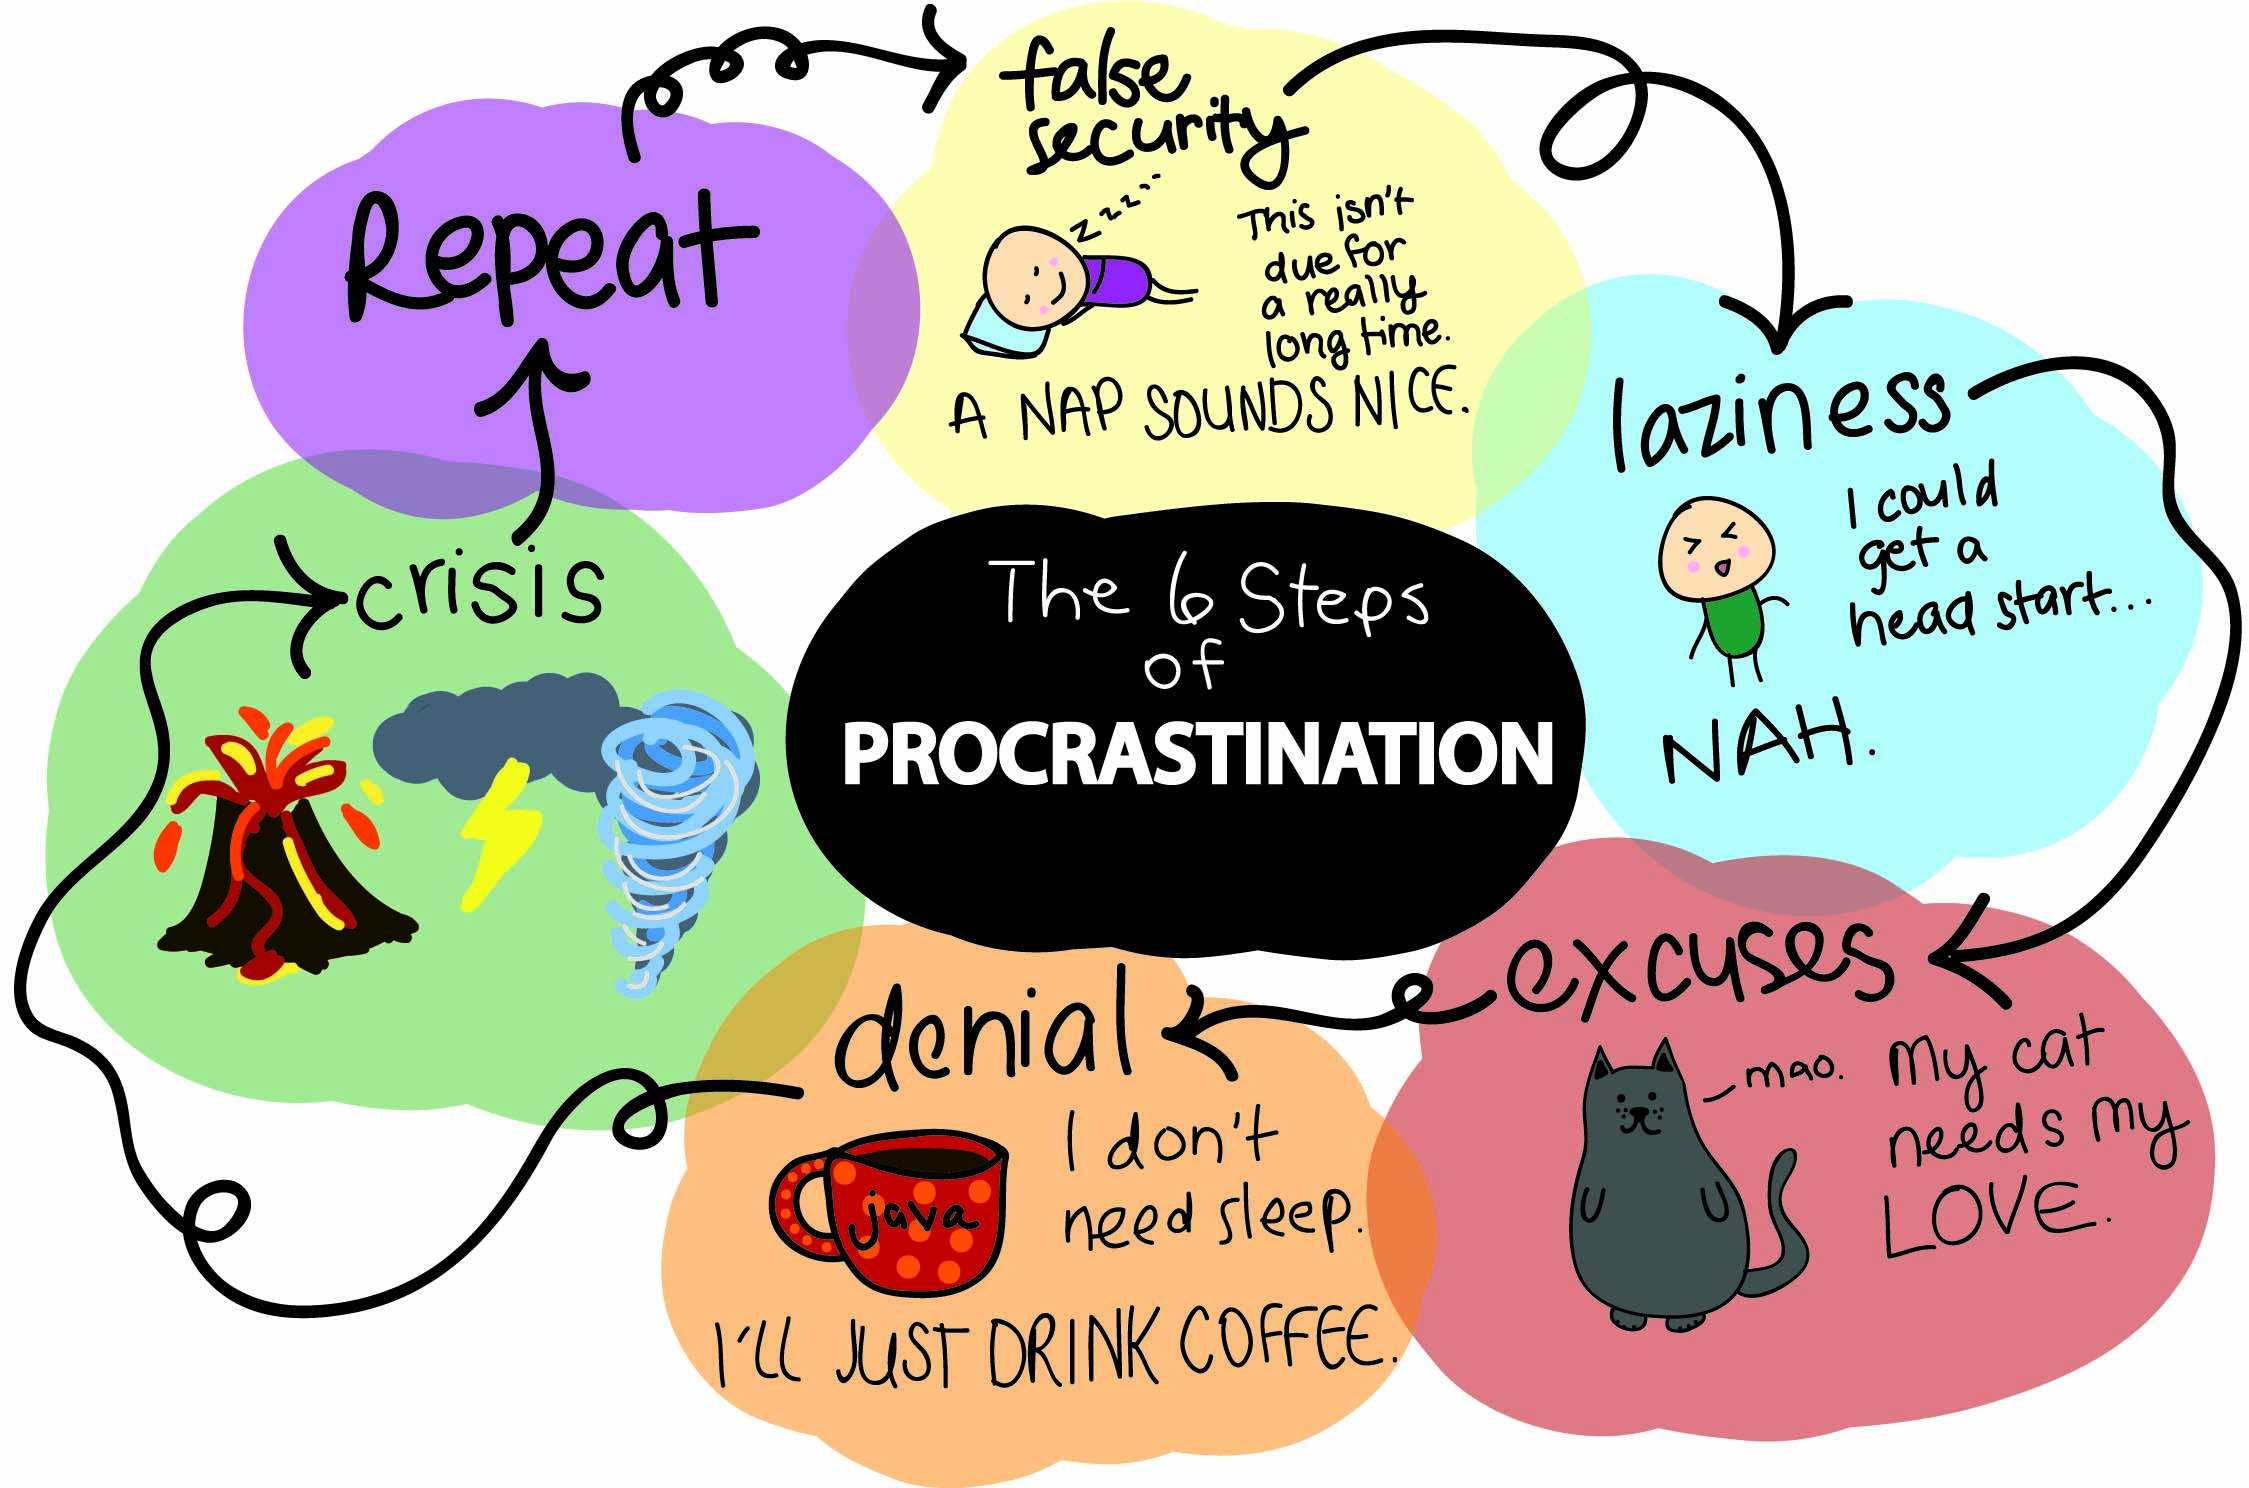 The 6 Steps
of
PROCRASTINATION
false
security
z z z z
This isn't
due for
a really
long time.
A NAP SOUNDS NICE.
laziness
I could
get a
head start...
NAH.
excuses
mao.
My cat
needs my
LOVE.
denial
java
I don't
need sleep.
I'LL JUST DRINK COFFEE.
crisis
Repeat